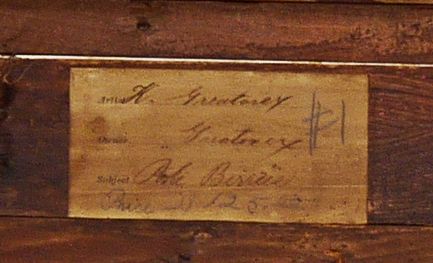 Artist K. Greatorex #1
Owner " Greatorex
Subject Poke Berries
Price